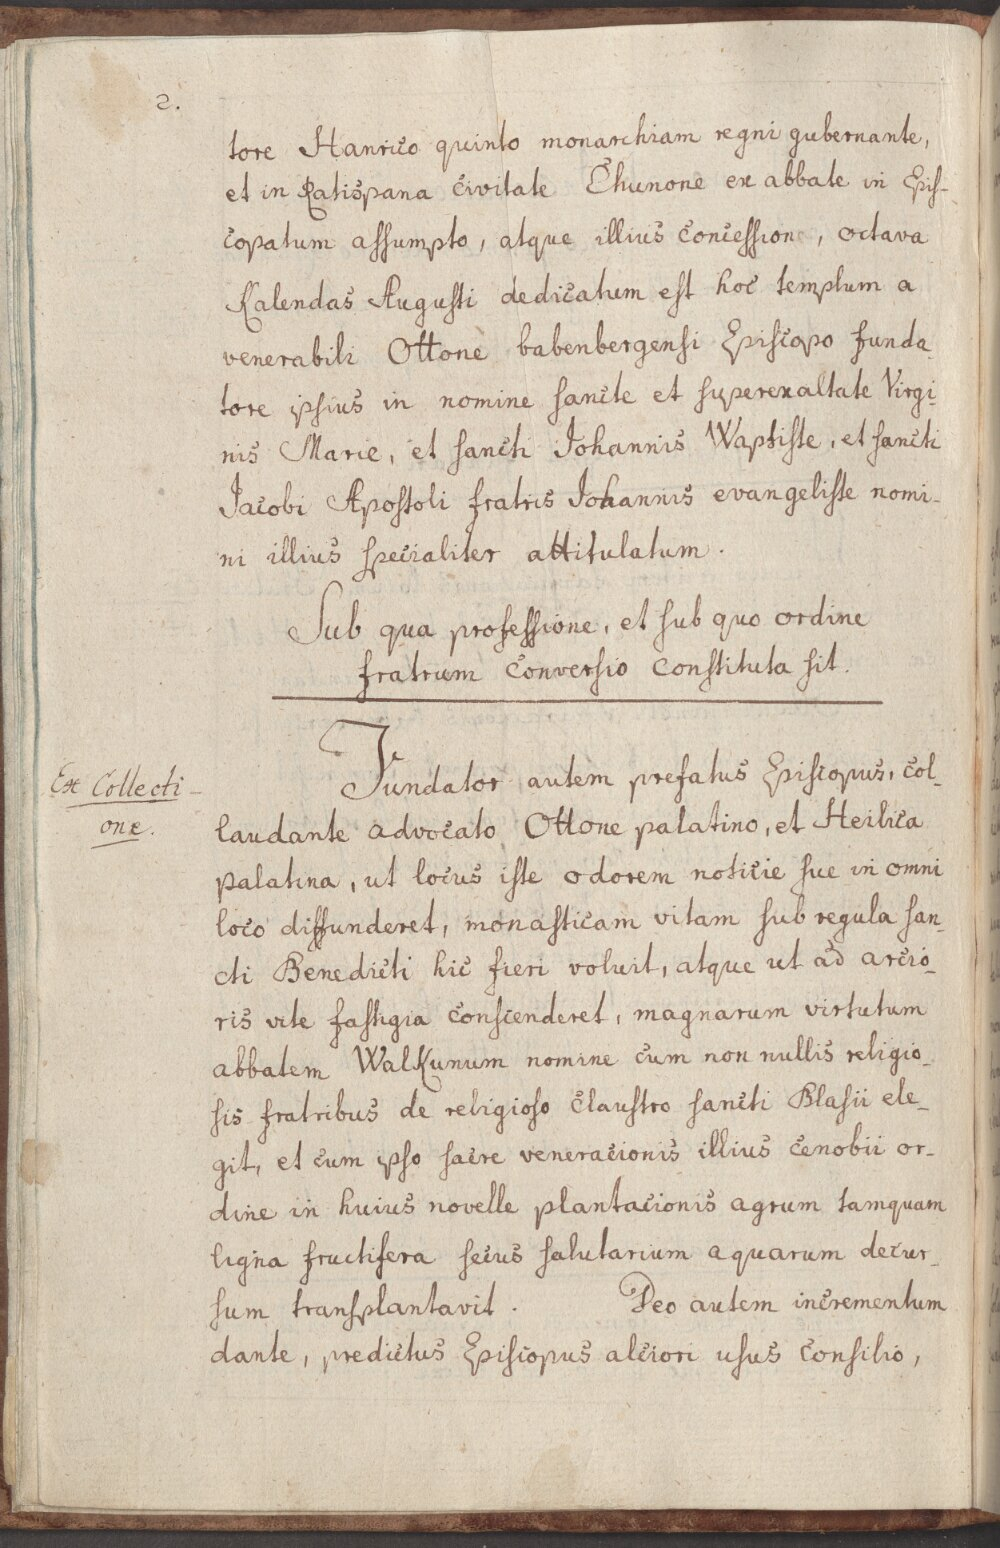 2.
tore Hanrico quinto monarchiam regni gubernante,
et in Ratispana civitate Chunone ex abbate in Epis-
copatum assumpto, atque illius concessione, octava
Kalendas Augusti dedicatum est hoc templum a
venerabili Ottone babenbergensi Episcopo funda-
tore ipsius in nomine sancte et superexaltate Virgi-
nis Marie, et sancti Iohannis Waptiste, et sancti
Jacobi Apostoli fratris Iohannis evangeliste nomi-
ni illius specialiter attitulatum.
Sub qua professione, et sub quo ordine
fratrum conversio constituta sit.
Fundator autem prefatus Episcopus, col-
laudante advocato Ottone palatino, et Heilica
palatina, ut locus iste odorem noticie sue in omni
loco diffunderet, monasticam vitam sub regula san-
cti Benedicti hic fieri voluit, atque ut ad arcio-
ris vite fastigia conscenderet, magnarum virtutum
abbatem WalKunum nomine cum non nullis religio-
sis fratribus de religioso claustro sancti Blasii ele-
git, et cum ipso sacre veneracionis illius cenobii or-
dine in huius novelle plantacionis agrum tamquam
ligna fructifera secus salutarium aquarum decur-
sum transplantavit. Deo autem incrementum
dante, predictus Episcopus alciori usus consilio,
Ex Collecti-
one.